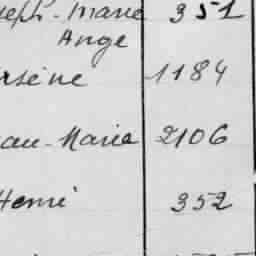 seph-Marie 351
Ange
rsène 1184
ean-Marie 2106
Henri 352